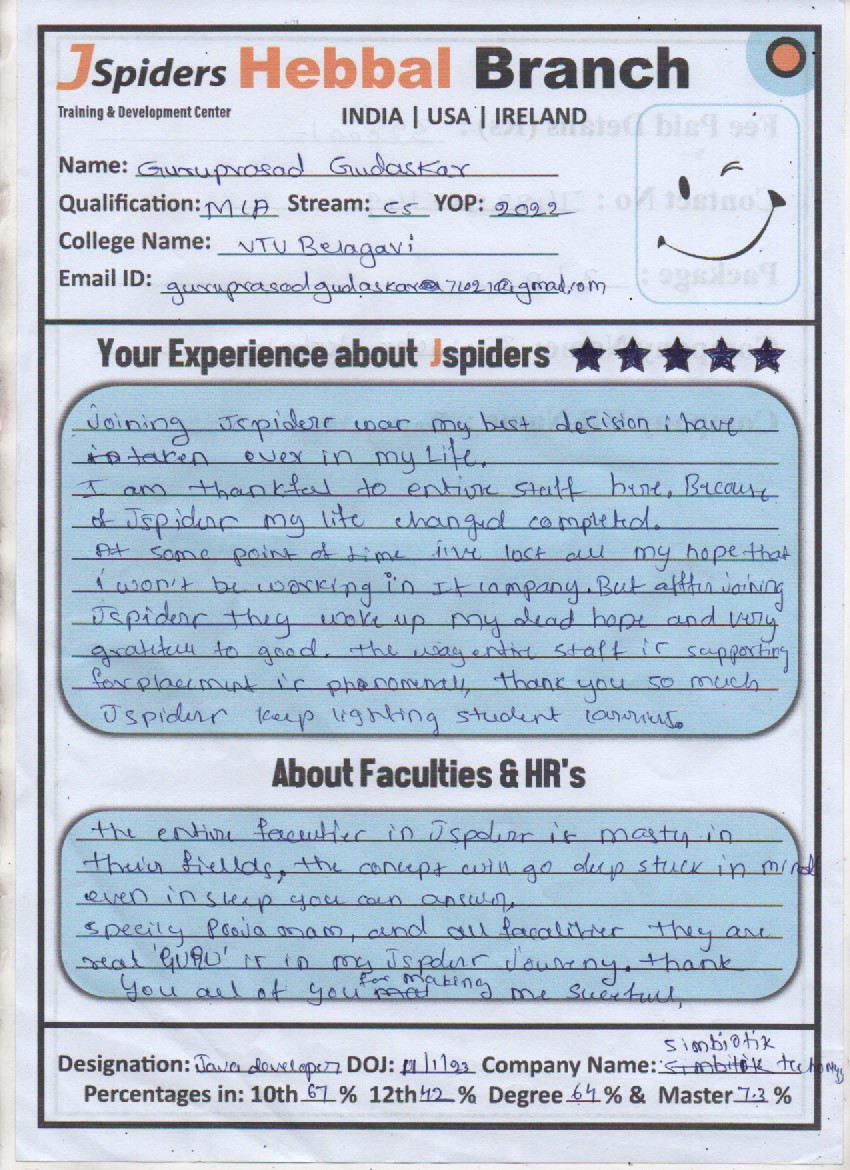 JSpiders Hebbal Branch
Training & Development Center
INDIA | USA | IRELAND
Name: Guruprasad Gudaskar
Qualification: MCA Stream: CS YOP: 2022
College Name: VTU Belagavi
Email ID:
Your Experience about Jspiders
Joining Jspiders was my best decision i have
taken ever in my Life.
I am thankful to entire staff here. Because
of Jspiders my life changed completed.
At some point of time i've lost all my hope that
i won't be working in It company. But after joining
Jspiders they woke up my dead hope and very
gratefull to good. the way entire staff is supporting
for placement is phenomenall, thank you so much
Jspiders keep lighting student carriers.
About Faculties & HR's
the entire faculties in Jspiders is master in
their fields, the concept will go deep stuck in mind
even in sleep you can answer.
specily Pooja mam, and all facalities they are
real 'GURU' is in my Jspiders Journey. thank
You all of you for making me Sucefull,
Designation: Java developer DOJ: /1/23 Company Name: Simbiotik
Percentages in: 10th 67 % 12th 42 % Degree 64 % & Master 7.3 %